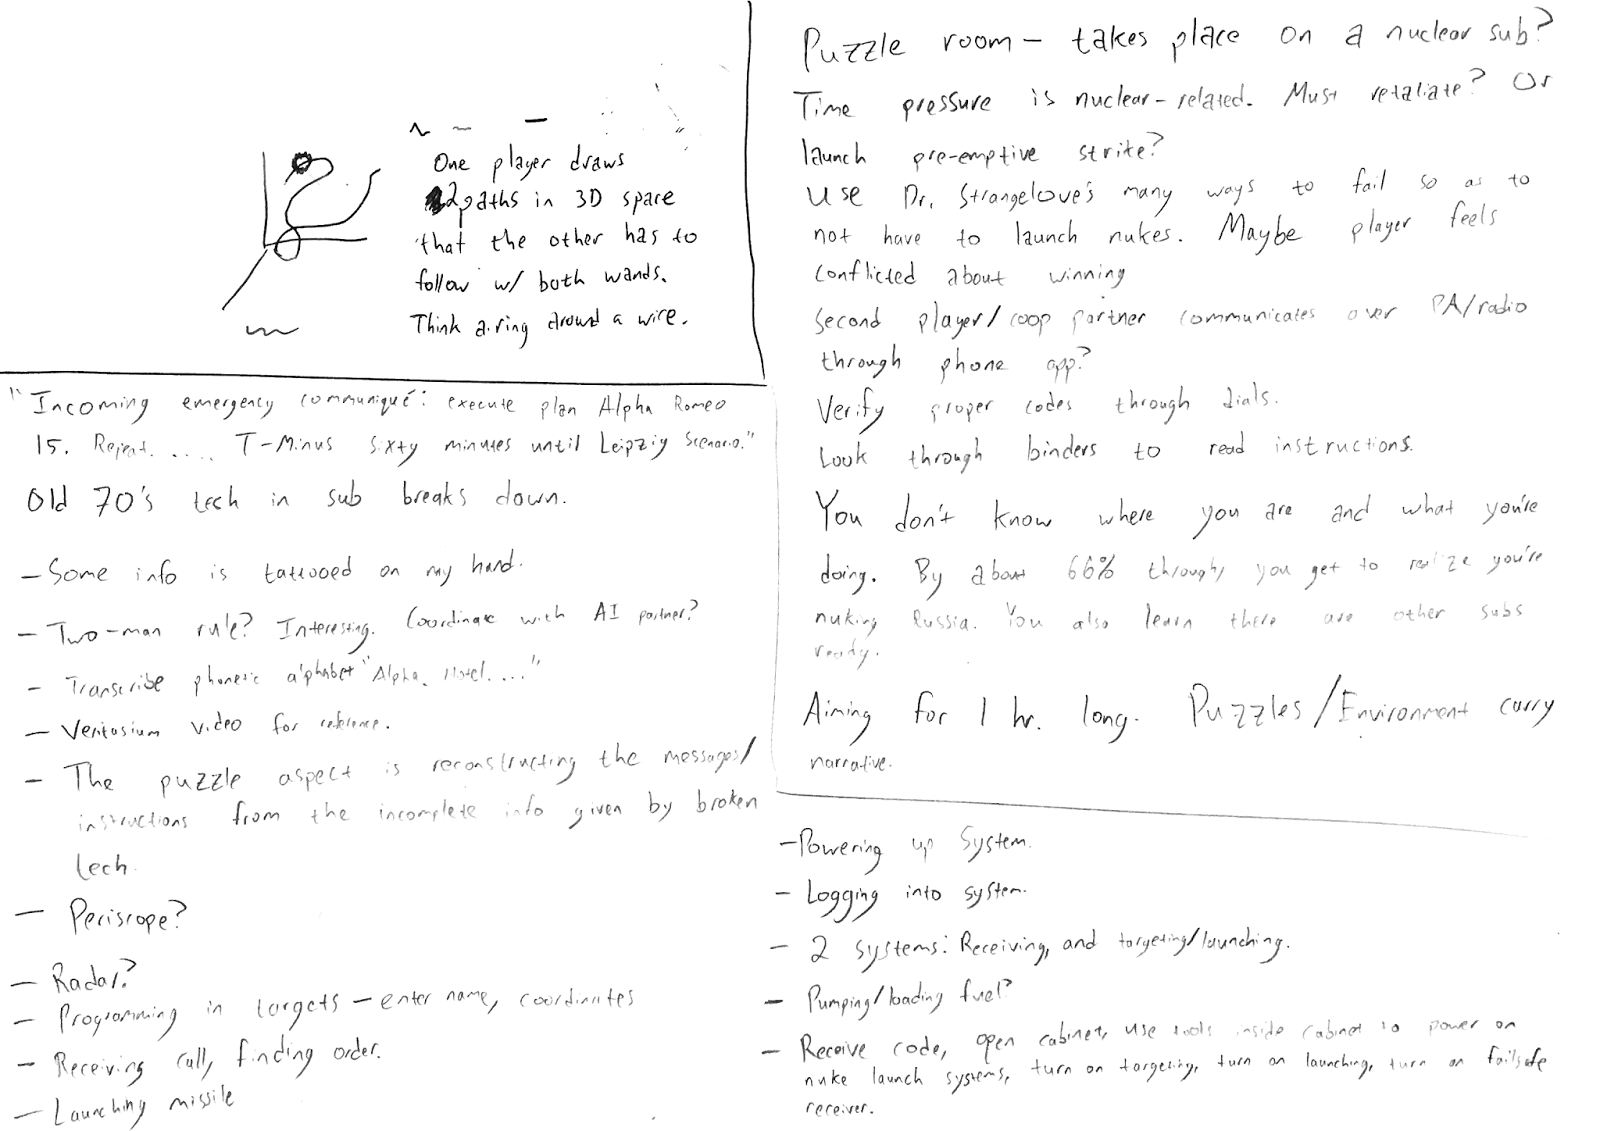 One player draws
2 paths in 3D space
that the other has to
follow w/ both wands.
Think a ring around a wire.
"Incoming emergency communiqué: execute plan Alpha Romeo
15. Repeat..... T-Minus sixty minutes until Leipzig Scenario."
Old 70's tech in sub breaks down.
- Some info is tattooed on my hand.
- Two-man rule? Interesting. Coordinate with AI partner?
- Transcribe phonetic alphabet "Alpha, Hotel....."
- Veritasium video for reference.
- The puzzle aspect is reconstructing the messages/
instructions from the incomplete info given by broken
tech.
- Periscope?
- Radar?
- Programming in targets - enter name, coordinates
- Receiving call, finding order.
- Launching missile
Puzzle room - takes place on a nuclear sub?
Time pressure is nuclear-related. Must retaliate? Or
launch pre-emptive strike?
Use Dr. Strangelove's many ways to fail so as to
not have to launch nukes. Maybe player feels
conflicted about winning
Second player/coop partner communicates over PA/radio
through phone app?
Verify proper codes through dials.
Look through binders to read instructions.
You don't know where you are and what you're
doing. By about 66% through, you get to realize you're
nuking Russia. You also learn there are other subs
ready.
Aiming for 1 hr. long. Puzzles/Environment carry
narrative.
- Powering up System.
- Logging into system.
- 2 systems: Receiving, and targeting/launching.
- Pumping/loading fuel?
- Receive code, open cabinet, use tools inside cabinet to power on
nuke launch systems, turn on targeting, turn on launching, turn on failsafe
receiver.